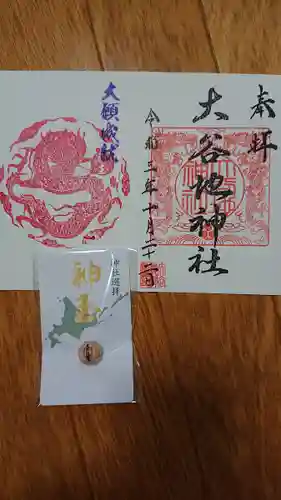 奉拝
大谷地神社
令和三年十月二十二日
大願成就
神社巡拝
御玉